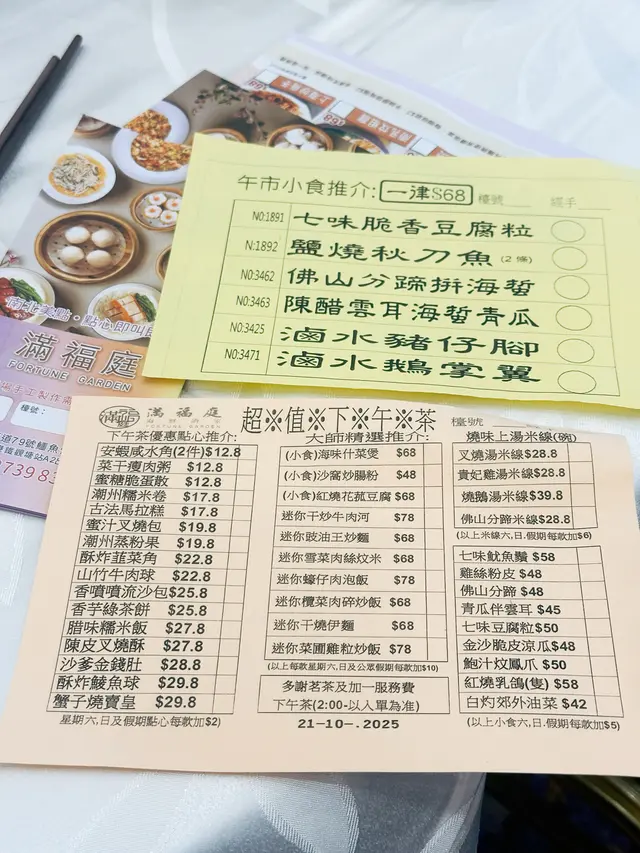 午市小食推介: 一律$68 檯號 經手
NO:1891 七味脆香豆腐粒
N:1892 鹽燒秋刀魚 (2條)
NO:3462 佛山分蹄拼海蜇
NO:3463 陳醋雲耳海蜇青瓜
NO:3425 滷水豬仔腳
NO:3471 滷水鵝掌翼
南北美點·點心即叫
滿福庭
FORTUNE GARDEN
手工製作需
檯號:
道79號
滿福庭
FORTUNE GARDEN
超※值※下※午※茶
檯號
下午茶優惠點心推介:
安蝦咸水角(2件) $12.8
菜干瘦肉粥 $12.8
蜜糖脆蛋散 $12.8
潮州糯米卷 $17.8
古法馬拉糕 $17.8
蜜汁叉燒包 $19.8
潮州蒸粉果 $19.8
酥炸韮菜角 $22.8
山竹牛肉球 $22.8
香噴噴流沙包 $25.8
香芋綠茶餅 $25.8
腊味糯米飯 $27.8
陳皮叉燒酥 $27.8
沙爹金錢肚 $28.8
酥炸鯪魚球 $29.8
蟹子燒賣皇 $29.8
星期六,日及假期點心每款加$2)
大師精選推介:
(小食)海味什菜煲 $68
(小食)沙窩炒腸粉 $48
(小食)紅燒花菰豆腐 $68
迷你干炒牛肉河 $78
迷你豉油王炒麵 $68
迷你雪菜肉絲炆米 $68
迷你蠔仔肉泡飯 $78
迷你欖菜肉碎炒飯 $68
迷你干燒伊麵 $68
迷你菜圃雞粒炒飯 $78
(以上每款星期六,日及公眾假期每款加$10)
多謝茗茶及加一服務費
下午茶(2:00-以入單為准)
21-10-.2025
燒味上湯米線(碗)
叉燒湯米線 $28.8
貴妃雞湯米線 $28.8
燒鵝湯米線 $39.8
佛山分蹄米線 $28.8
(以上米線六,日.假期每款加$6)
七味魷魚鬚 $58
雞絲粉皮 $48
佛山分蹄 $48
青瓜伴雲耳 $45
七味豆腐粒 $50
金沙脆皮涼瓜 $48
鮑汁炆鳳爪 $50
紅燒乳鴿(隻) $58
白灼郊外油菜 $42
(以上小食六,日.假期每款加$5)